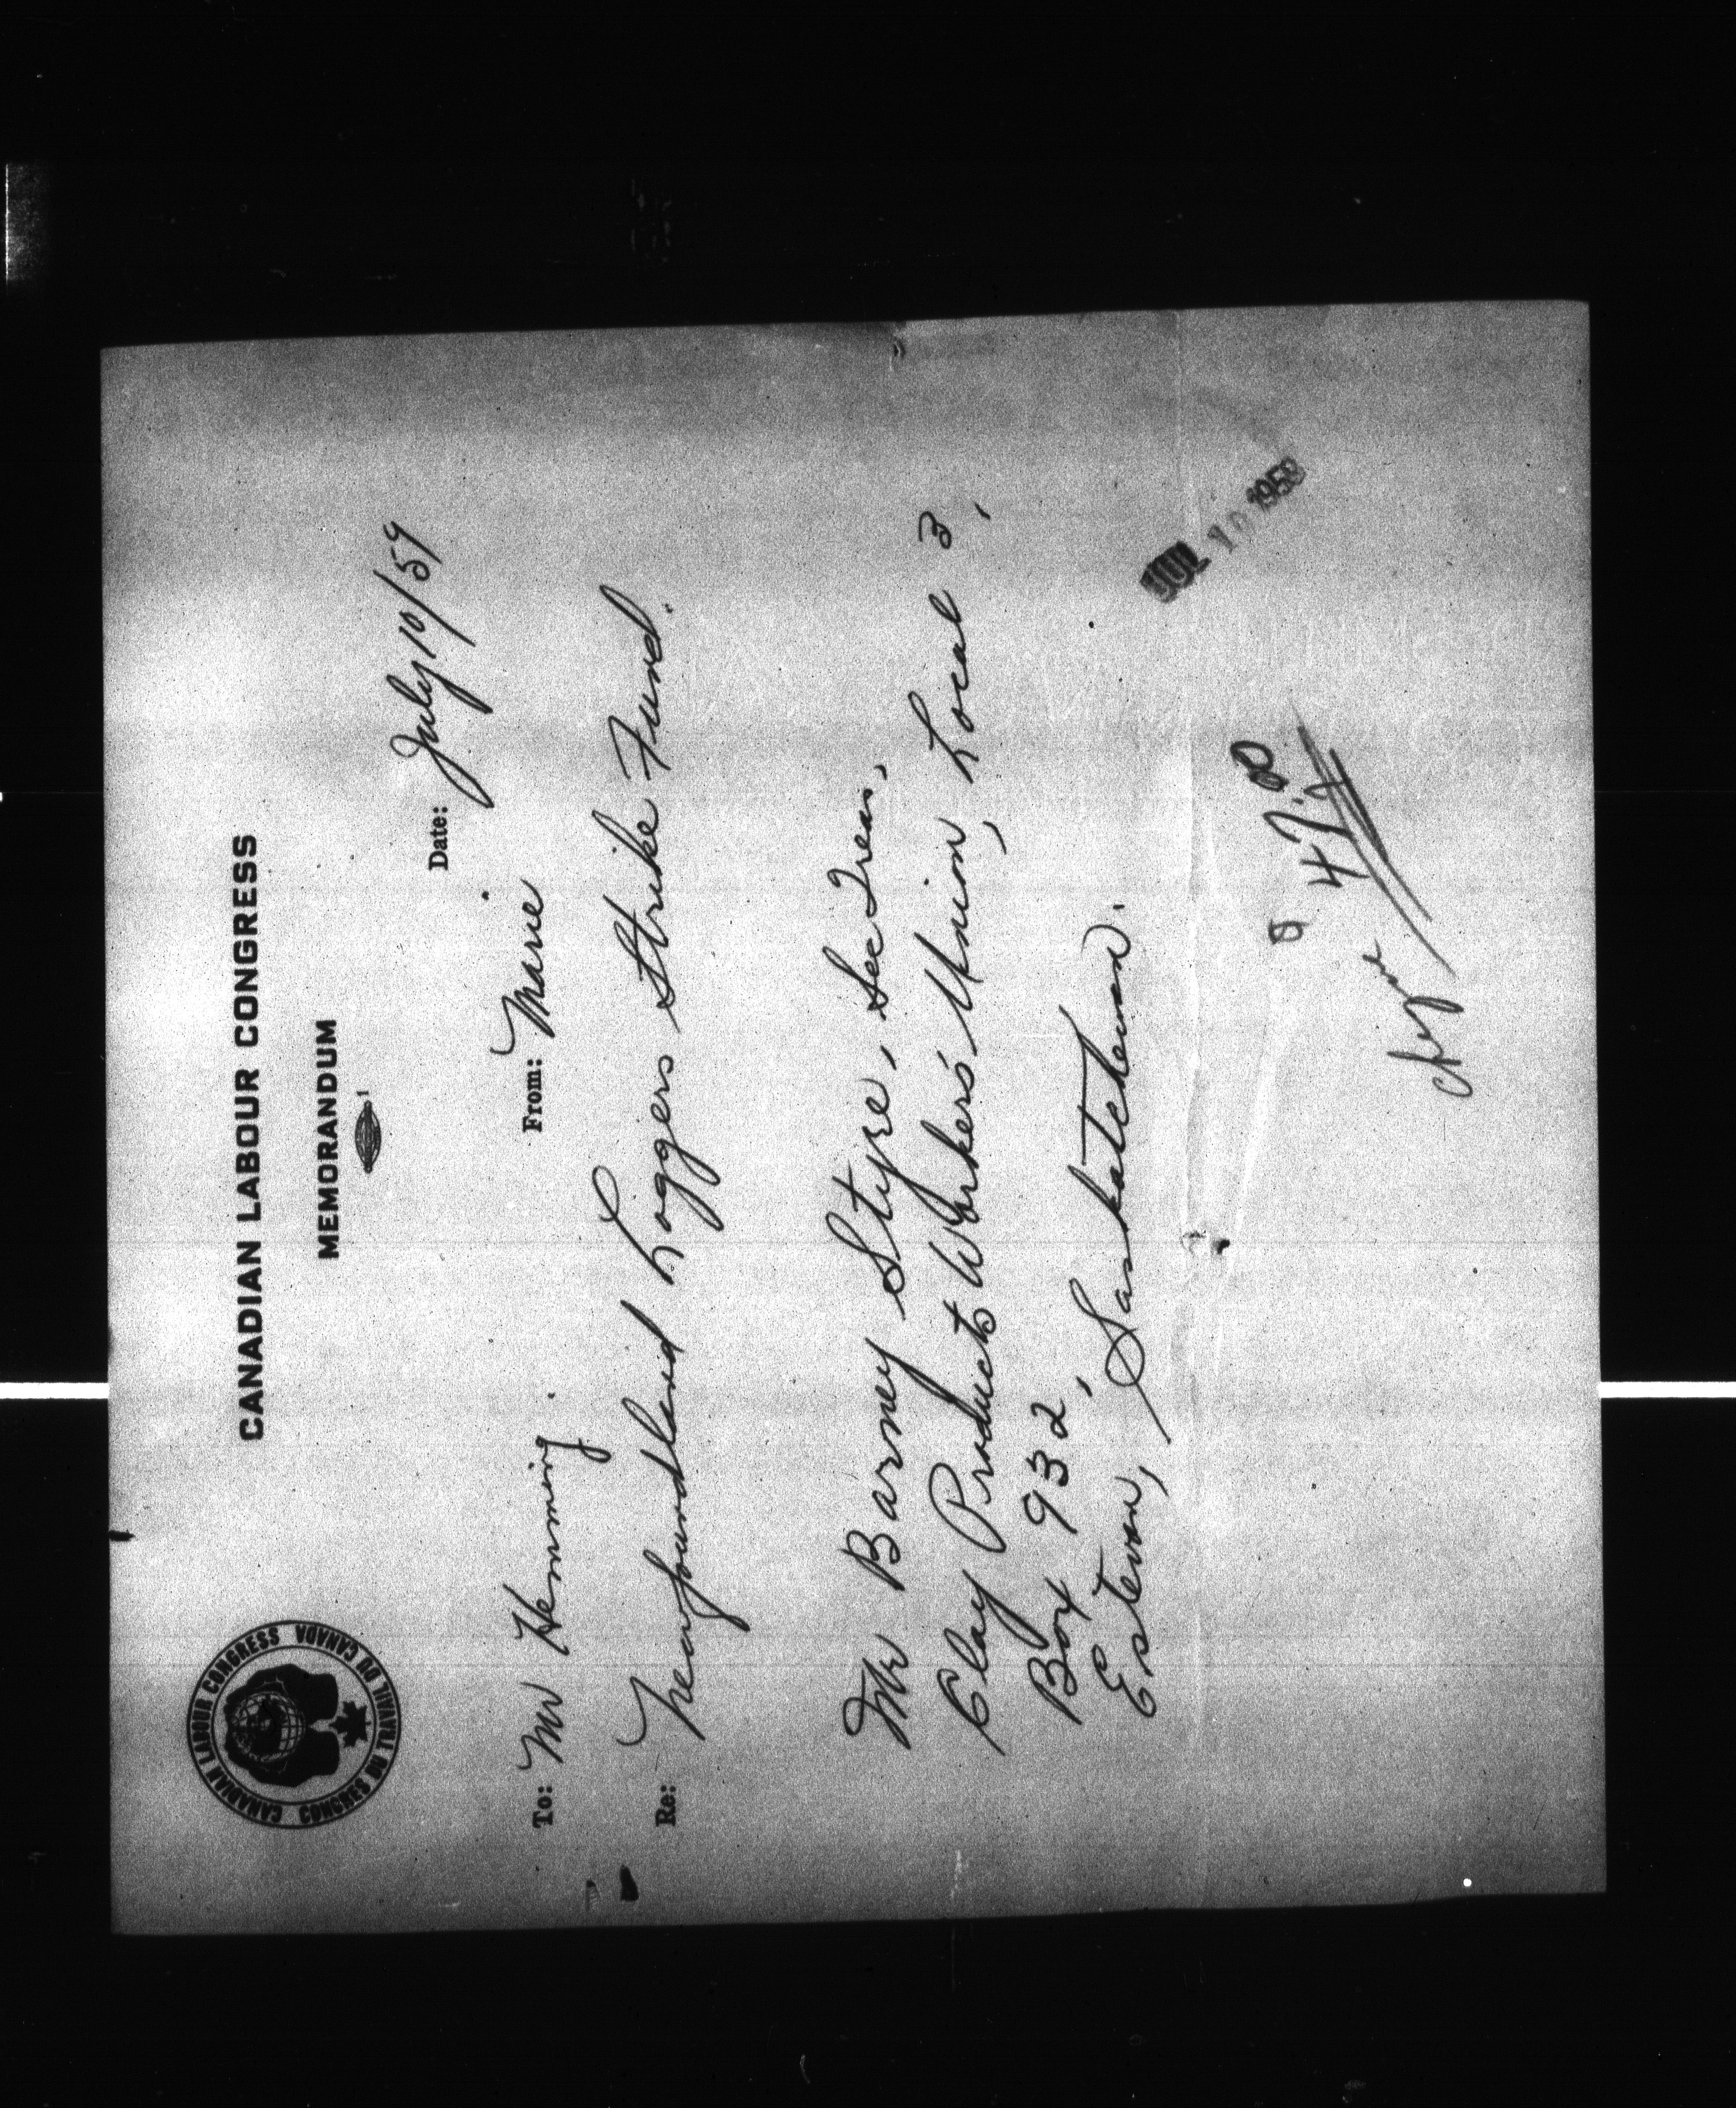 CANADIAN LABOUR CONGRESS CONGRÈS DU TRAVAIL DU CANADA
CANADIAN LABOUR CONGRESS
MEMORANDUM
Date: July 10/59
To: Mr Hemming. From: Marie
Re: Newfoundland Loggers Strike Fund.
Mr Barney Styre, Sec Treas.,
Clay Products Workers' Union, Local 3,
Box 932,
Estevan, Saskatchewan.
JUL 10 1959
47.20